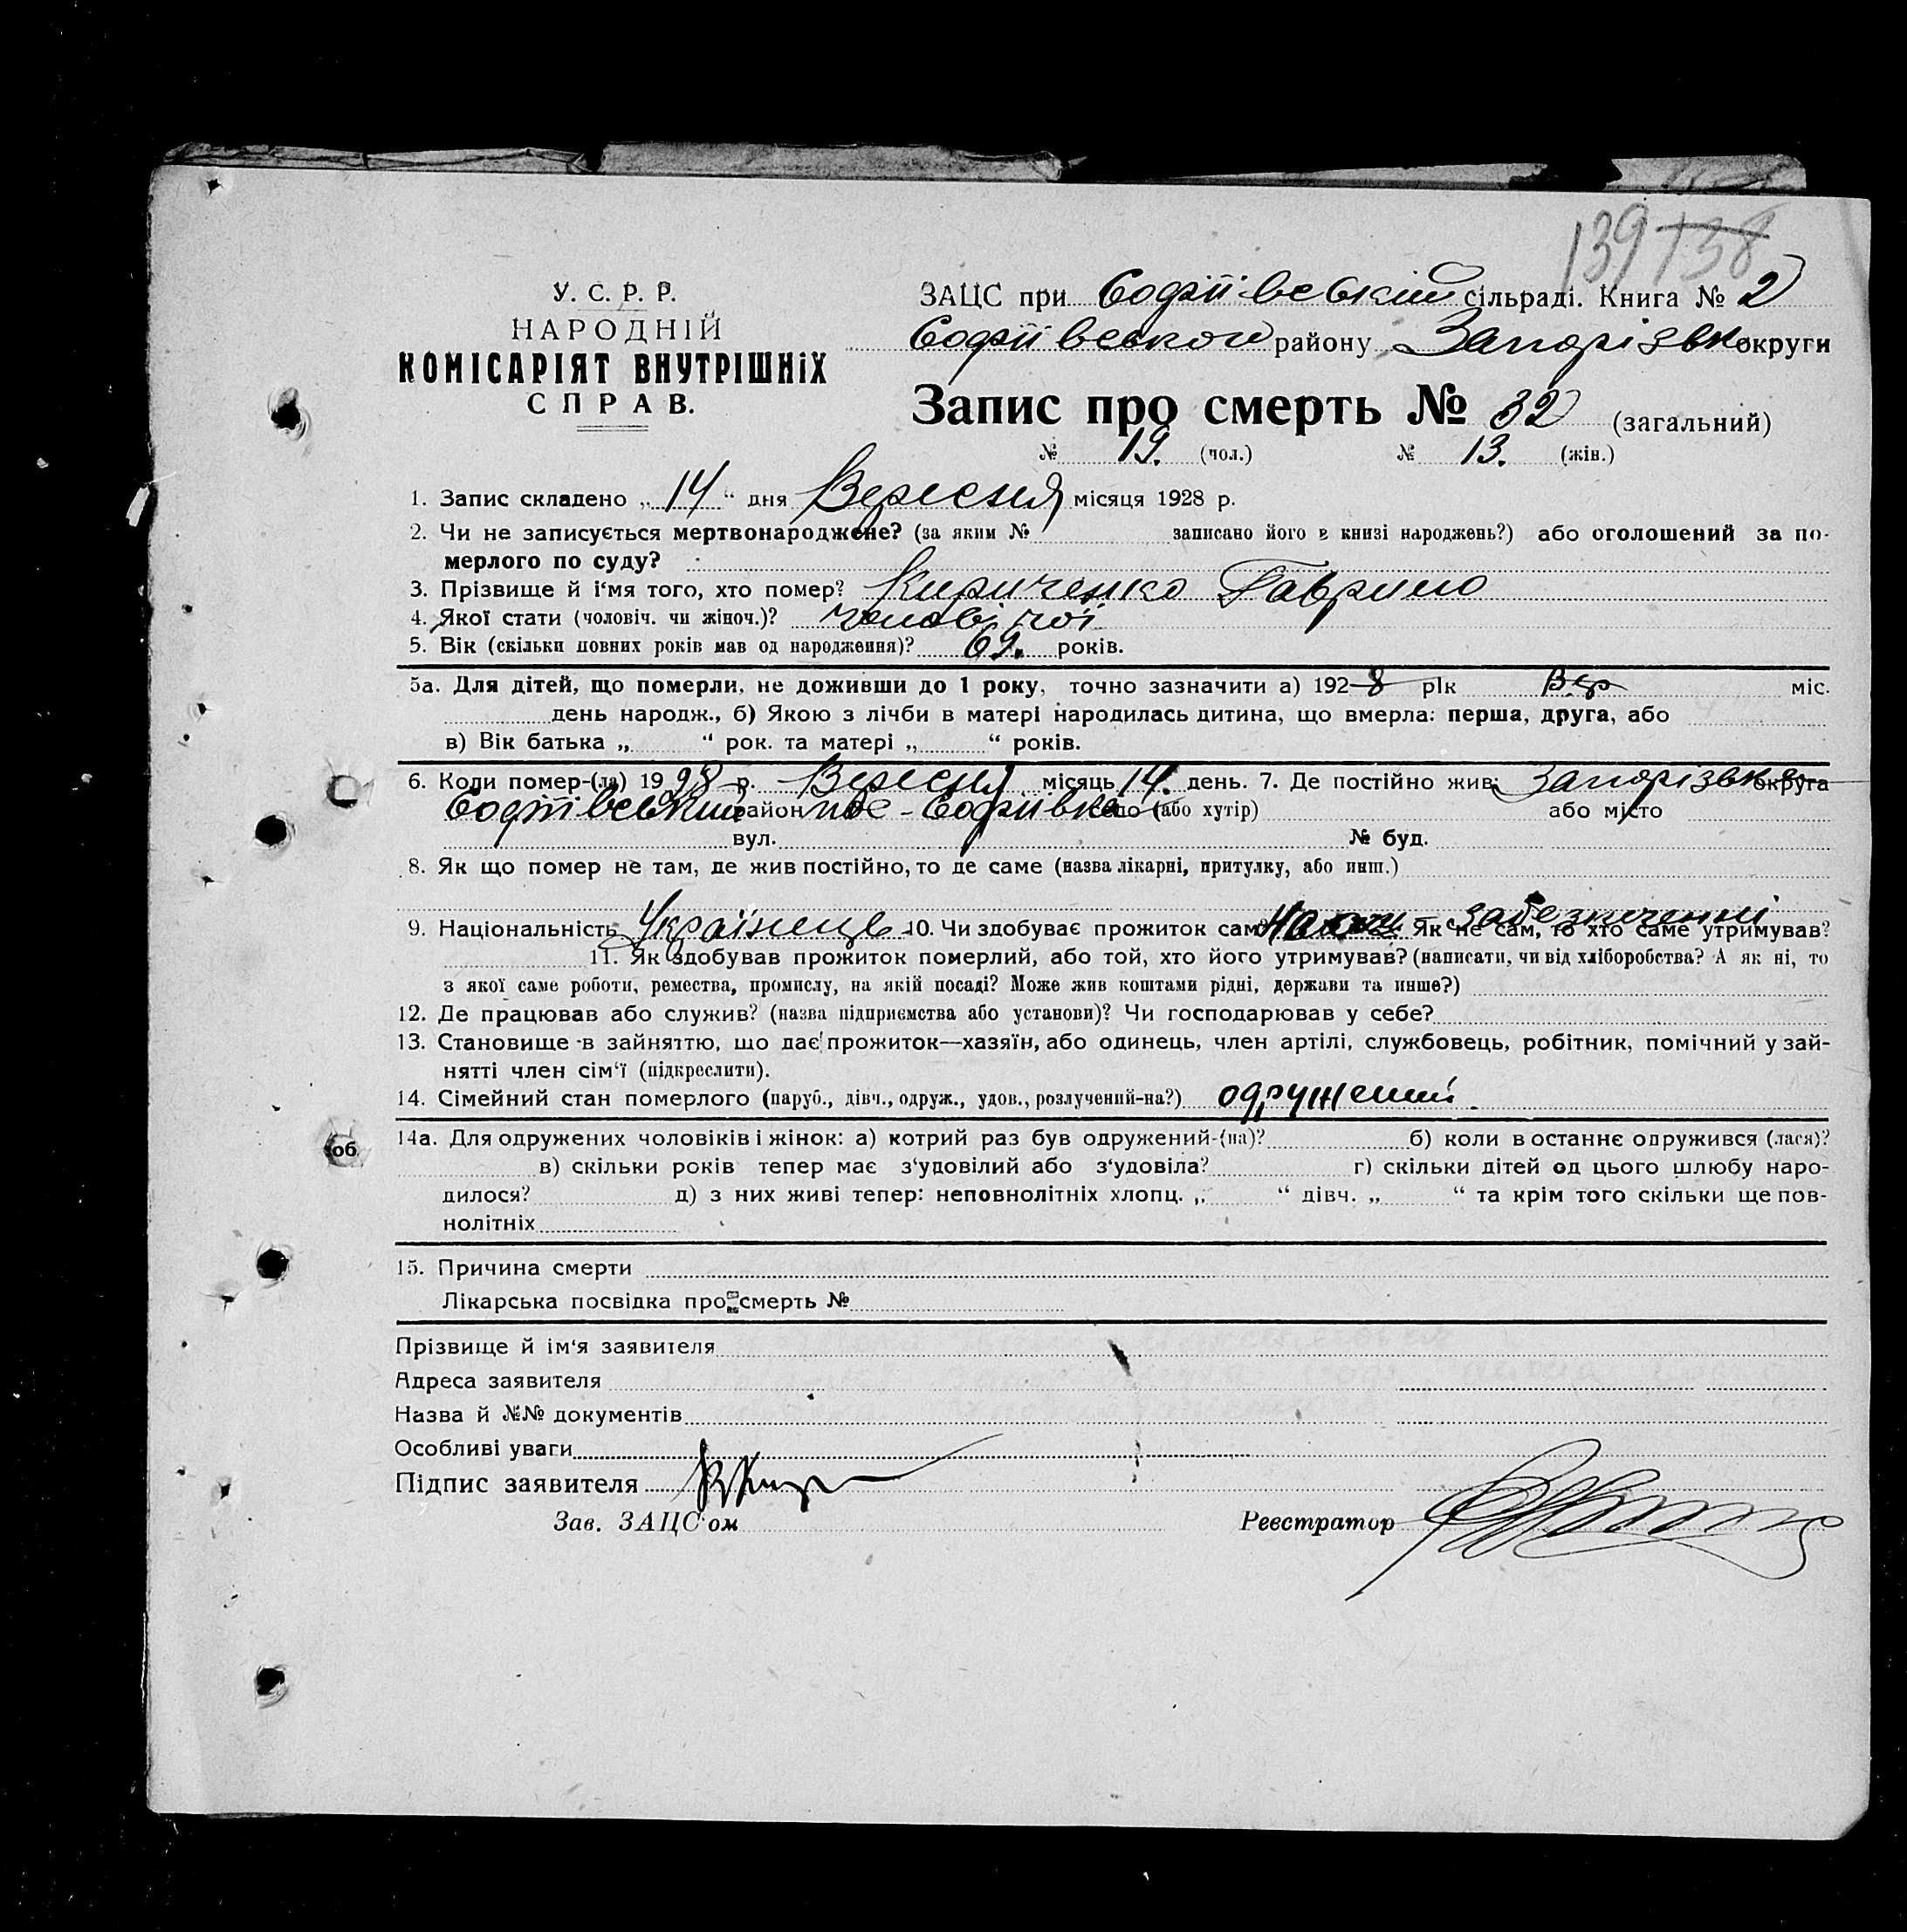 139 138
У. С. Р. Р.
НАРОДНІЙ
КОМІСАРІЯТ ВНУТРІШНіХ
СПРАВ.
ЗАЦС при Софіївській сільраді. Книга № 2
Софіївського району Запорізьк округи
Запис про смерть № 32 (загальний)
№ 19. (чол.) № 13. (жін.)
1. Запис складено „ 14 “ дня Вересня місяця 1928 р.
2. Чи не записується мертвонароджене? (за яким № записано його в книзі народжень?) або оголошений за по-
мерлого по суду?
3. Прізвище й і‘мя того, хто помер? Кириченко Гаврило
4. Якої стати (чоловіч. чи жіноч.)? чоловічої
5. Вік (скільки повних років мав од народження)? 69. років.
5а. Для дітей, що померли, не доживши до 1 року, точно зазначити а) 192 8 рік Вер міс.
день народж., б) Якою з лічби в матері народилась дитина, що вмерла: перша, друга, або
в) Вік батька „ “ рок. та матері „ “ років.
6. Коли помер-(ла) 19 28 р. Вересня місяць 14. день. 7. Де постійно жив: Запорізька округа
Софіївський район с - Софіївка село (або хутір) або місто
вул. № буд.
8. Як що помер не там, де жив постійно, то де саме (назва лікарні, притулку, або инш.)
9. Національність Українець 10. Чи здобуває прожиток сам? забезпеченні Як не сам, то хто саме утримував?
11. Як здобував прожиток померлий, або той, хто його утримував? (написати, чи від хліборобства? А як ні, то
з якої саме роботи, ремества, промислу, на якій посаді? Може жив коштами рідні, держави та инше?)
12. Де працював або служив? (назва підприємства або установи)? Чи господарював у себе?
13. Становище в зайняттю, що дає прожиток—хазяїн, або одинець, член артілі, службовець, робітник, помічний у зай-
нятті член сім‘ї (підкреслити).
14. Сімейний стан померлого (паруб., дівч., одруж., удов., розлучений-на?) одружений.
14а. Для одружених чоловіків і жінок: а) котрий раз був одружений-(на)? б) коли в останнє одружився (лася)?
в) скільки років тепер має з‘удовілий або з‘удовіла? г) скільки дітей од цього шлюбу наро-
дилося? д) з них живі тепер: неповнолітніх хлопц. „ “ дівч. „ “ та крім того скільки ще пов-
нолітніх
об
15. Причина смерти
Лікарська посвідка про смерть №
Прізвище й ім‘я заявителя
Адреса заявителя
Назва й №№ документів
Особливі уваги
Підпис заявителя
Зав. ЗАЦС‘ом Реєстратор